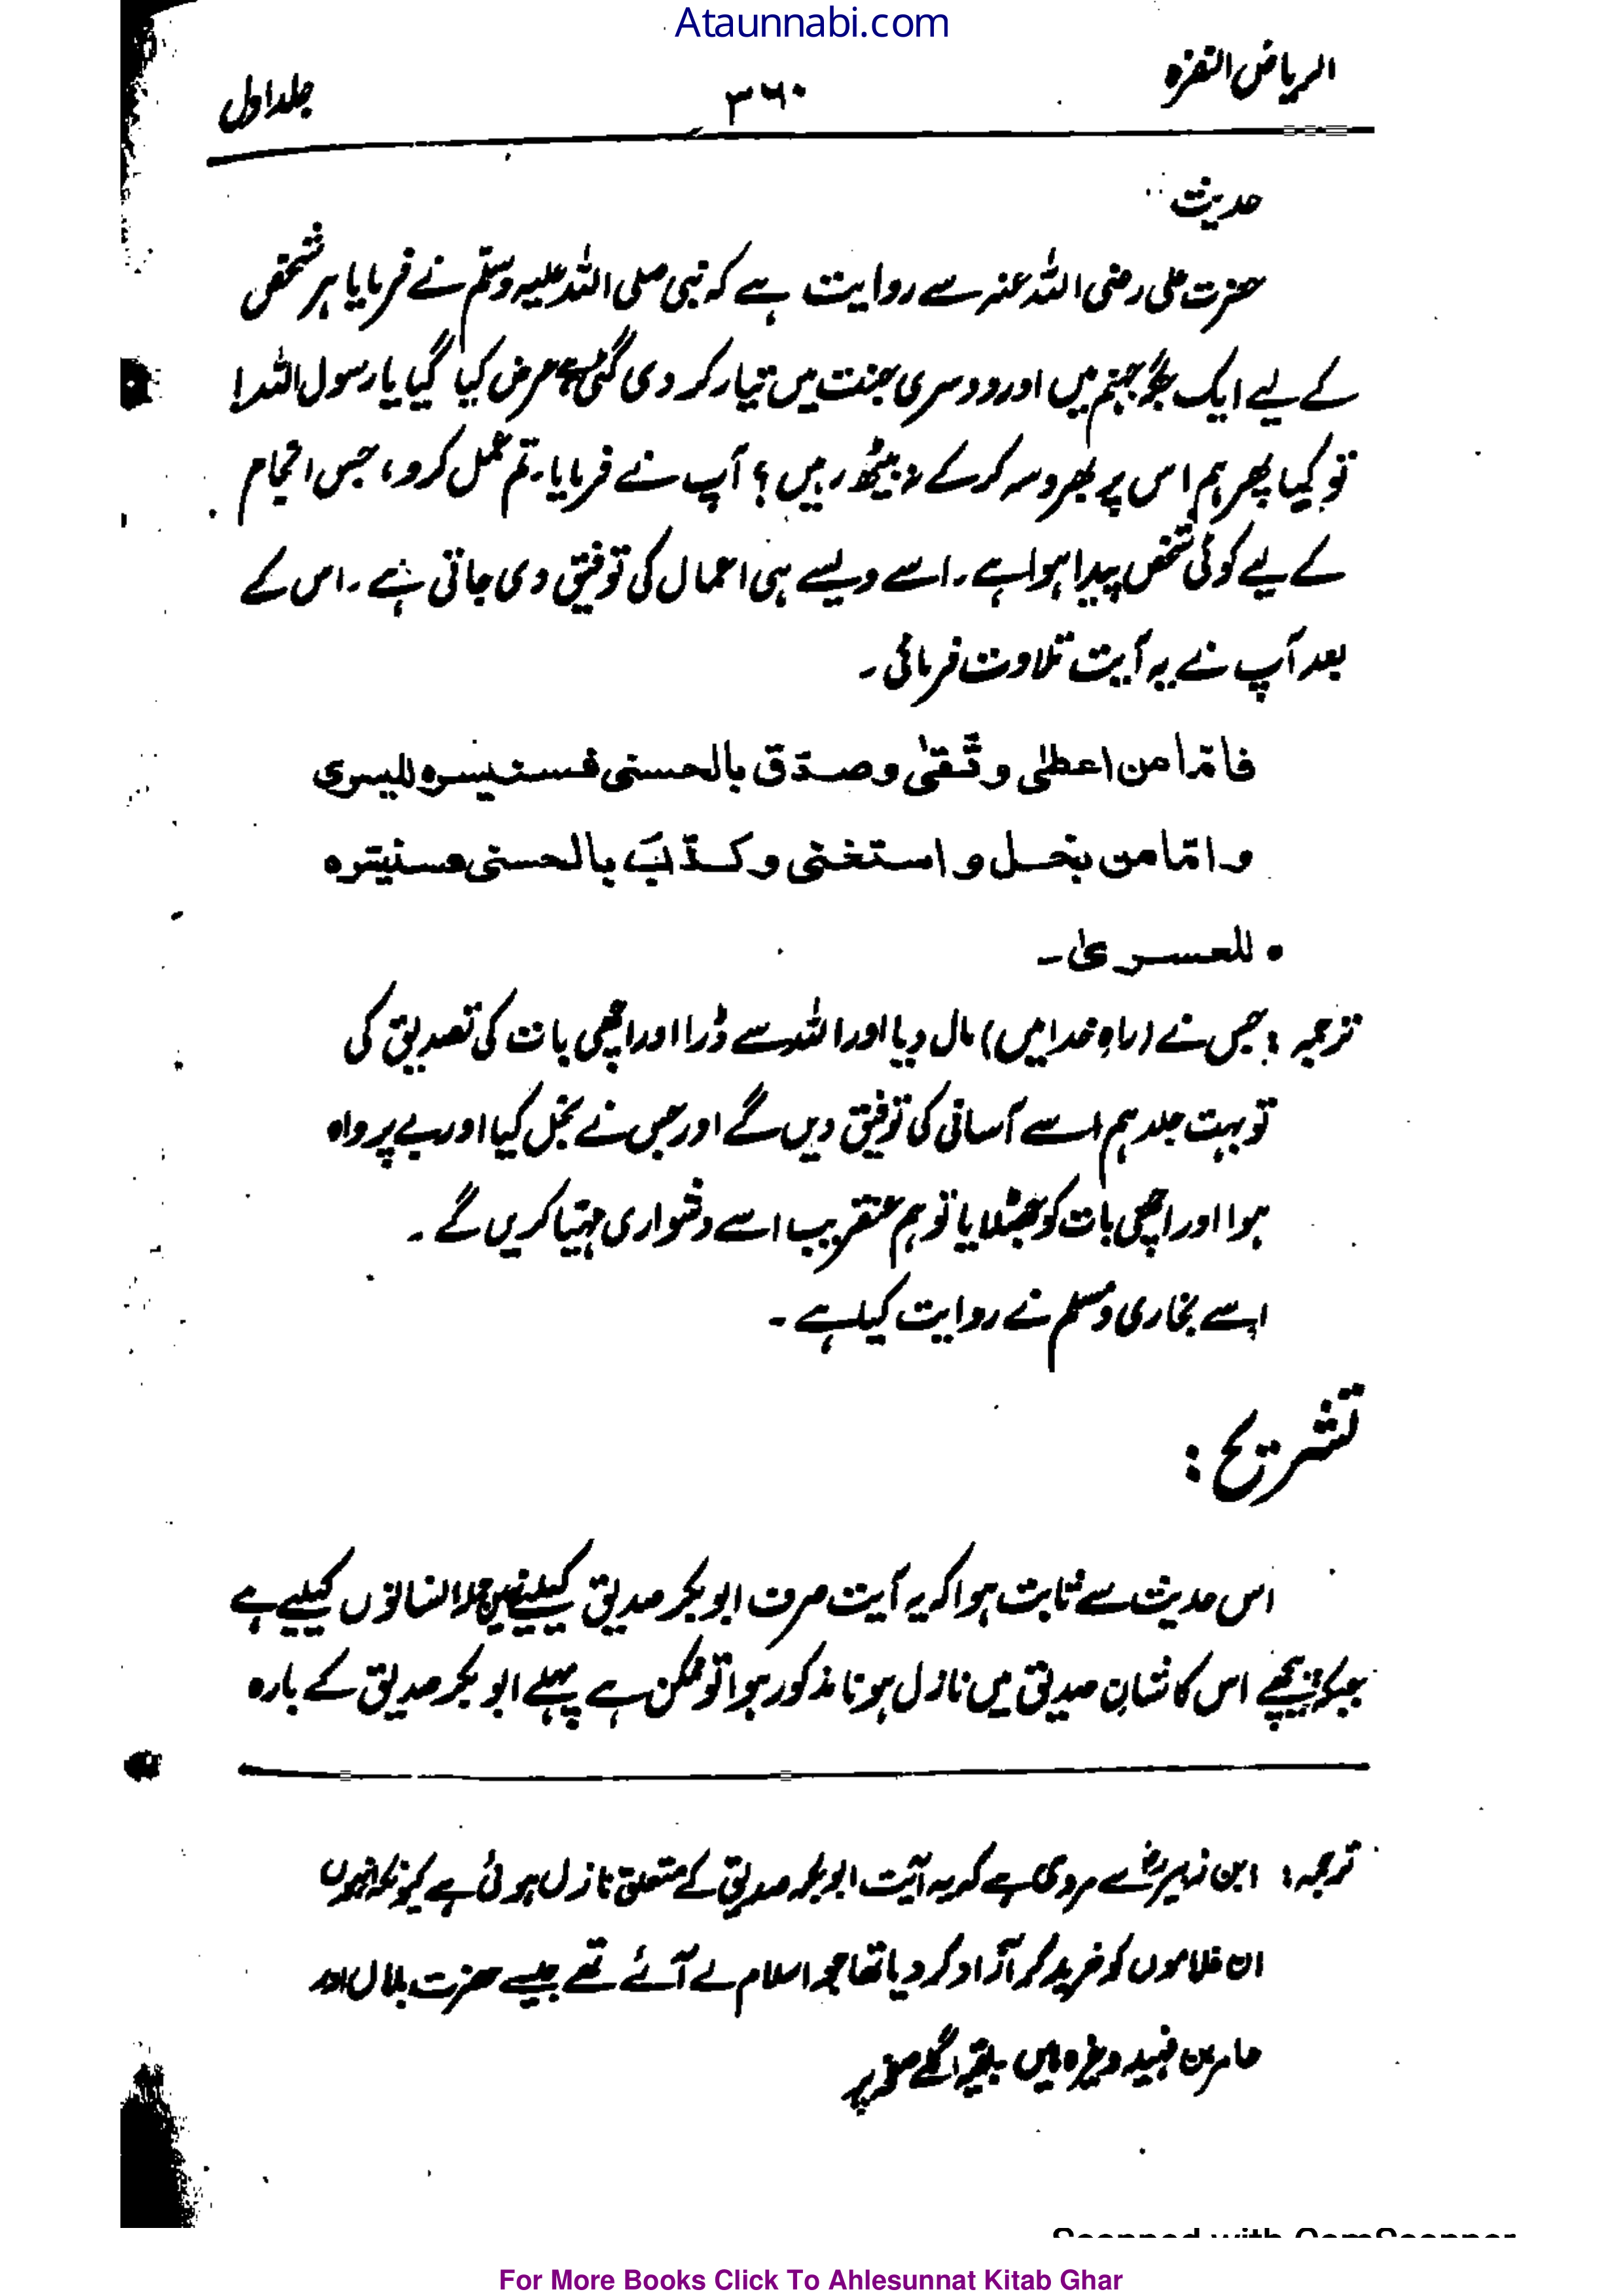 Ataunnabi.com
الریاض النضرہ ۳۶۰ جلد اول
حدیث
حضرت علی رضی اللہ عنہ سے روایت ہے کہ نبی صلی اللہ علیہ وسلم نے فرمایا ہر شخص
کے لیے ایک جگہ جہنم میں اور دوسری جنت میں تیار کر دی گئی ہے عرض کیا گیا یا رسول اللہ!
تو کیا پھر ہم اس پر بھروسہ کر کے نہ بیٹھ رہیں ؟ آپ نے فرمایا۔ تم عمل کرو، جس انجام
کے لیے کوئی شخص پیدا ہوا ہے۔ اسے ویسے ہی اعمال کی توفیق دی جاتی ہے۔ اس کے
بعد آپ نے یہ آیت تلاوت فرمائی۔
فامّا من اعطٰی و تّقٰی و صدّق بالحسنی فسنیسره للیسری
و امّا من بخل و استغنی و کذّب بالحسنی فسنیسّره
للعسریٰ۔
ترجمہ : جس نے (راہِ خدا میں) مال دیا اور اللہ سے ڈرا اور اچھی بات کی تصدیق کی
تو بہت جلد ہم اسے آسانی کی توفیق دیں گے اور جس نے بخل کیا اور بے پرواہ
ہوا اور اچھی بات کو جھٹلایا تو ہم عنقریب اسے دشواری مہیّا کریں گے ۔
اسے بخاری و مسلم نے روایت کیا ہے ۔
تشریح :
اس حدیث سے ثابت ہوا کہ یہ آیت صرف ابوبکر صدیق کیلئے نہیں جملہ انسانوں کیلئے ہے
جبکہ پیچھے اس کا شانِ صدیق میں نازل ہونا مذکور ہوا تو ممکن ہے پہلے ابوبکر صدیق کے بارہ
ترجمہ : ابن زبیر رضؓ سے مروی ہے کہ یہ آیت ابوبکر صدیق کے متعلق نازل ہوئی ہے کیونکہ انہوں
ان غلاموں کو خرید کر آزاد کر دیا تھا جو اسلام لے آئے تھے جیسے حضرت بلال اور
عامر بن فہیرہ وغیرہ ہیں بقیہ اگلے صفحہ پر
For More Books Click To Ahlesunnat Kitab Ghar